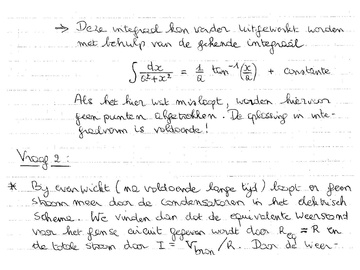 → Deze integraal kan verder uitgewerkt worden
met behulp van de gekende integraal
∫ dx/(b²+x²) = 1/a tan⁻¹(x/a) + constante
Als het hier wat misloopt, worden hiervoor
geen punten afgetrokken. De oplossing in inte-
graalvorm is voldoende!
Vraag 2:
* By evenwicht (na voldoende lange tijd) loopt er geen
stroom meer door de condensatoren in het elektrisch
schema. We vinden dan dat de equivalente weerstand
voor het ganse circuit gegeven wordt door Req = R en
de totale stroom door I = Vbron/R. Door de weer-